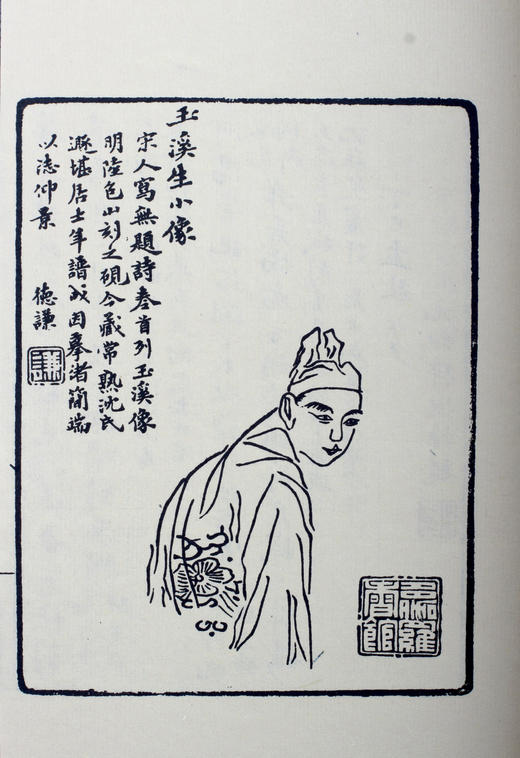 玉溪生小像
宋人寫無題詩卷首列玉溪像
明陸包山刻之硯今藏常熟沈氏
遯堪居士年譜成因摹諸簡端
以誌仰景 德謙
謙
多伽羅香館